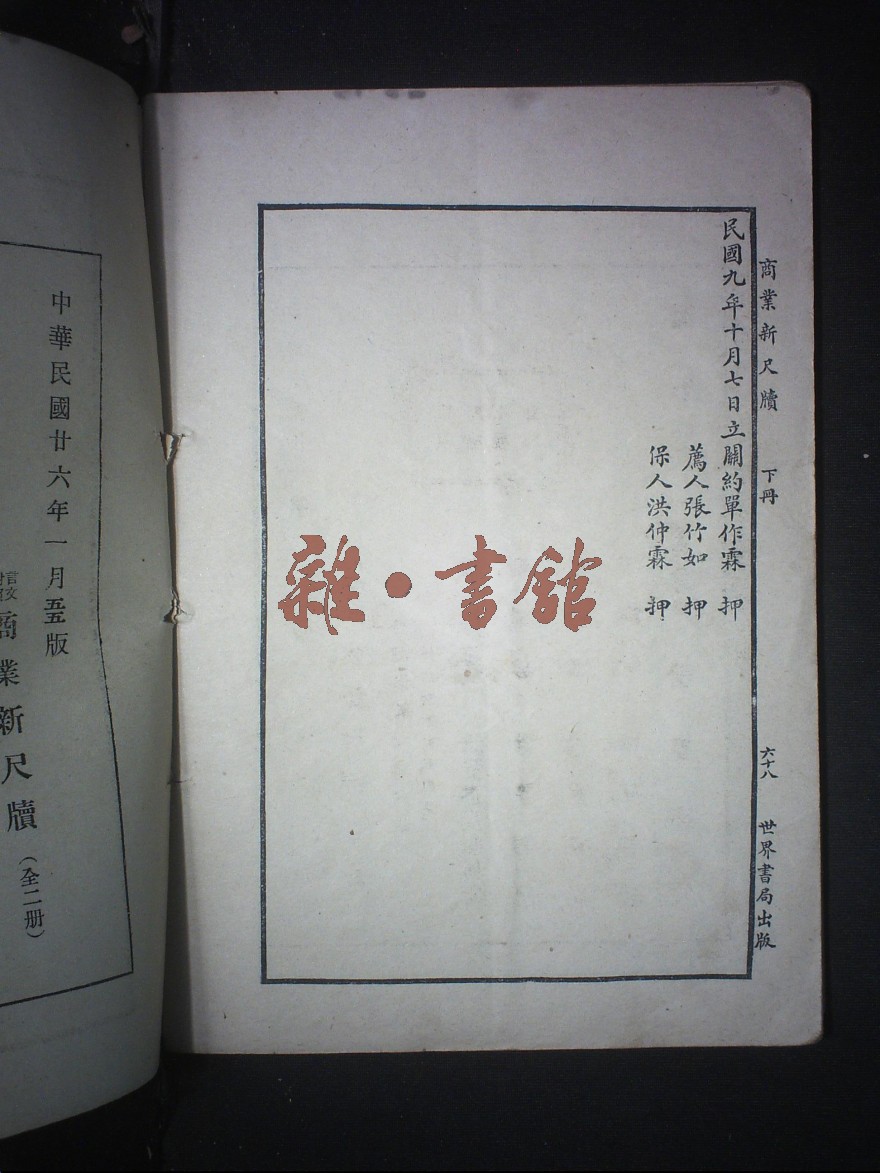 商業新尺牘 下冊 六十八 世界書局出版
民國九年十月七日立關約單作霖 押
薦人張竹如 押
保人洪仲霖 押
雜·書館
中華民國廿六年一月五版
商業新尺牘(全二册)